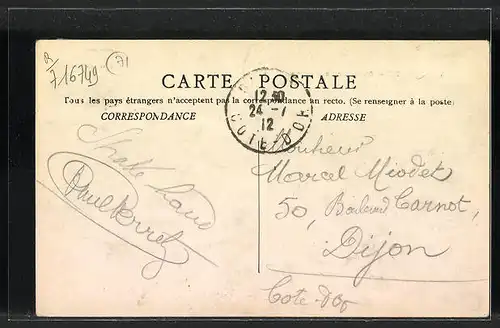 R/
716749 (71)
CARTE POSTALE
Tous les pays étrangers n'acceptent pas la correspondance au recto. (Se renseigner à la poste
CORRESPONDANCE
ADRESSE
12
24 - 7
12
COTE-D'OR
Shake hand
Paul Perret
Monsieur
Marcel Miodet
50, Boulevard Carnot,
Dijon
Côte-d'Or